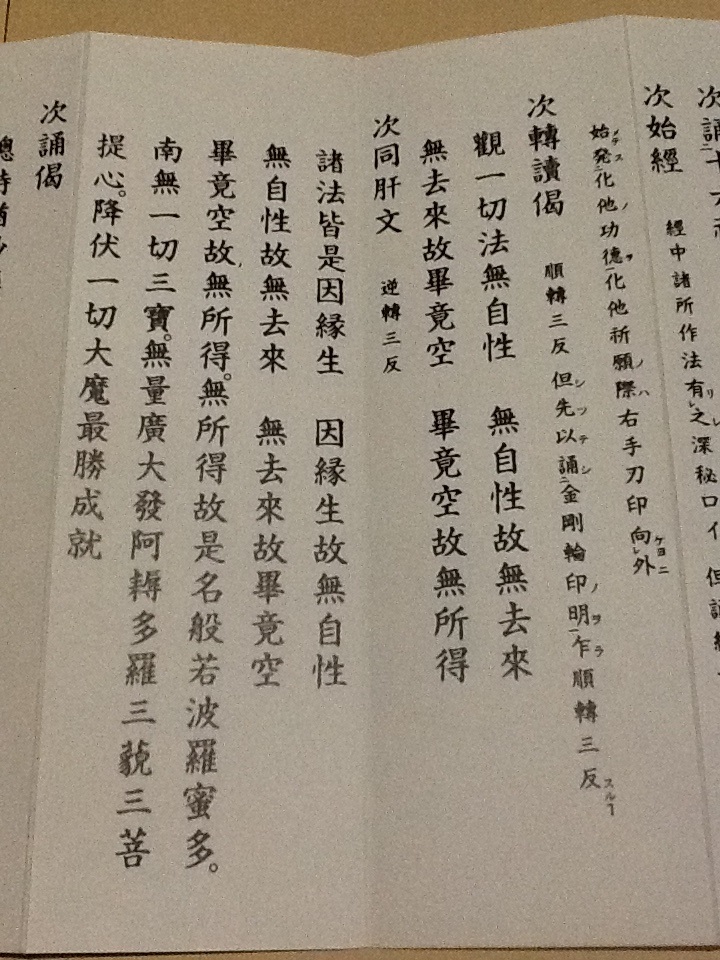 次誦十六
次始經 經中諸所作法有之深秘口 但誦
始発化他功徳化他祈願際右手刀印向外
次轉讀偈 順轉三反 但先以誦金剛輪印明乍順轉三反
觀一切法無自性 無自性故無去來
無去來故畢竟空 畢竟空故無所得
次同肝文 逆轉三反
諸法皆是因縁生 因縁生故無自性
無自性故無去來 無去來故畢竟空
畢竟空故、無所得。無所得故是名般若波羅蜜多。
南無一切三寶。無量廣大發阿耨多羅三藐三菩
提心。降伏一切大魔最勝成就
次誦偈